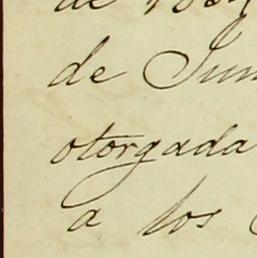 de
de Jun
otorgada
a los